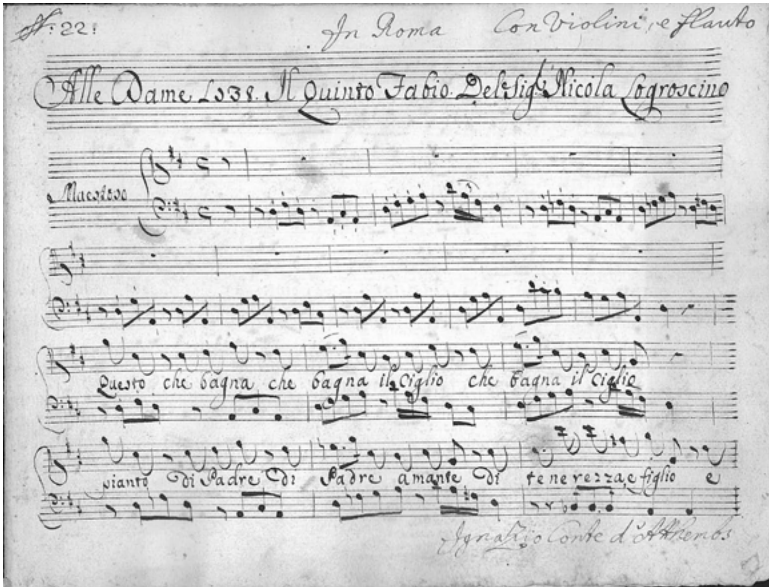 N: 22: In Roma Con Violini, e flauto
Alle Dame 1738. Il Quinto Fabio. Del Sig.r Nicola Logroscino
Maestoso
Questo che bagna che bagna il Ciglio che bagna il Ciglio
pianto di Padre di Padre amante di tenerezza, e figlio e
Ignazio Conte d'Atthembs